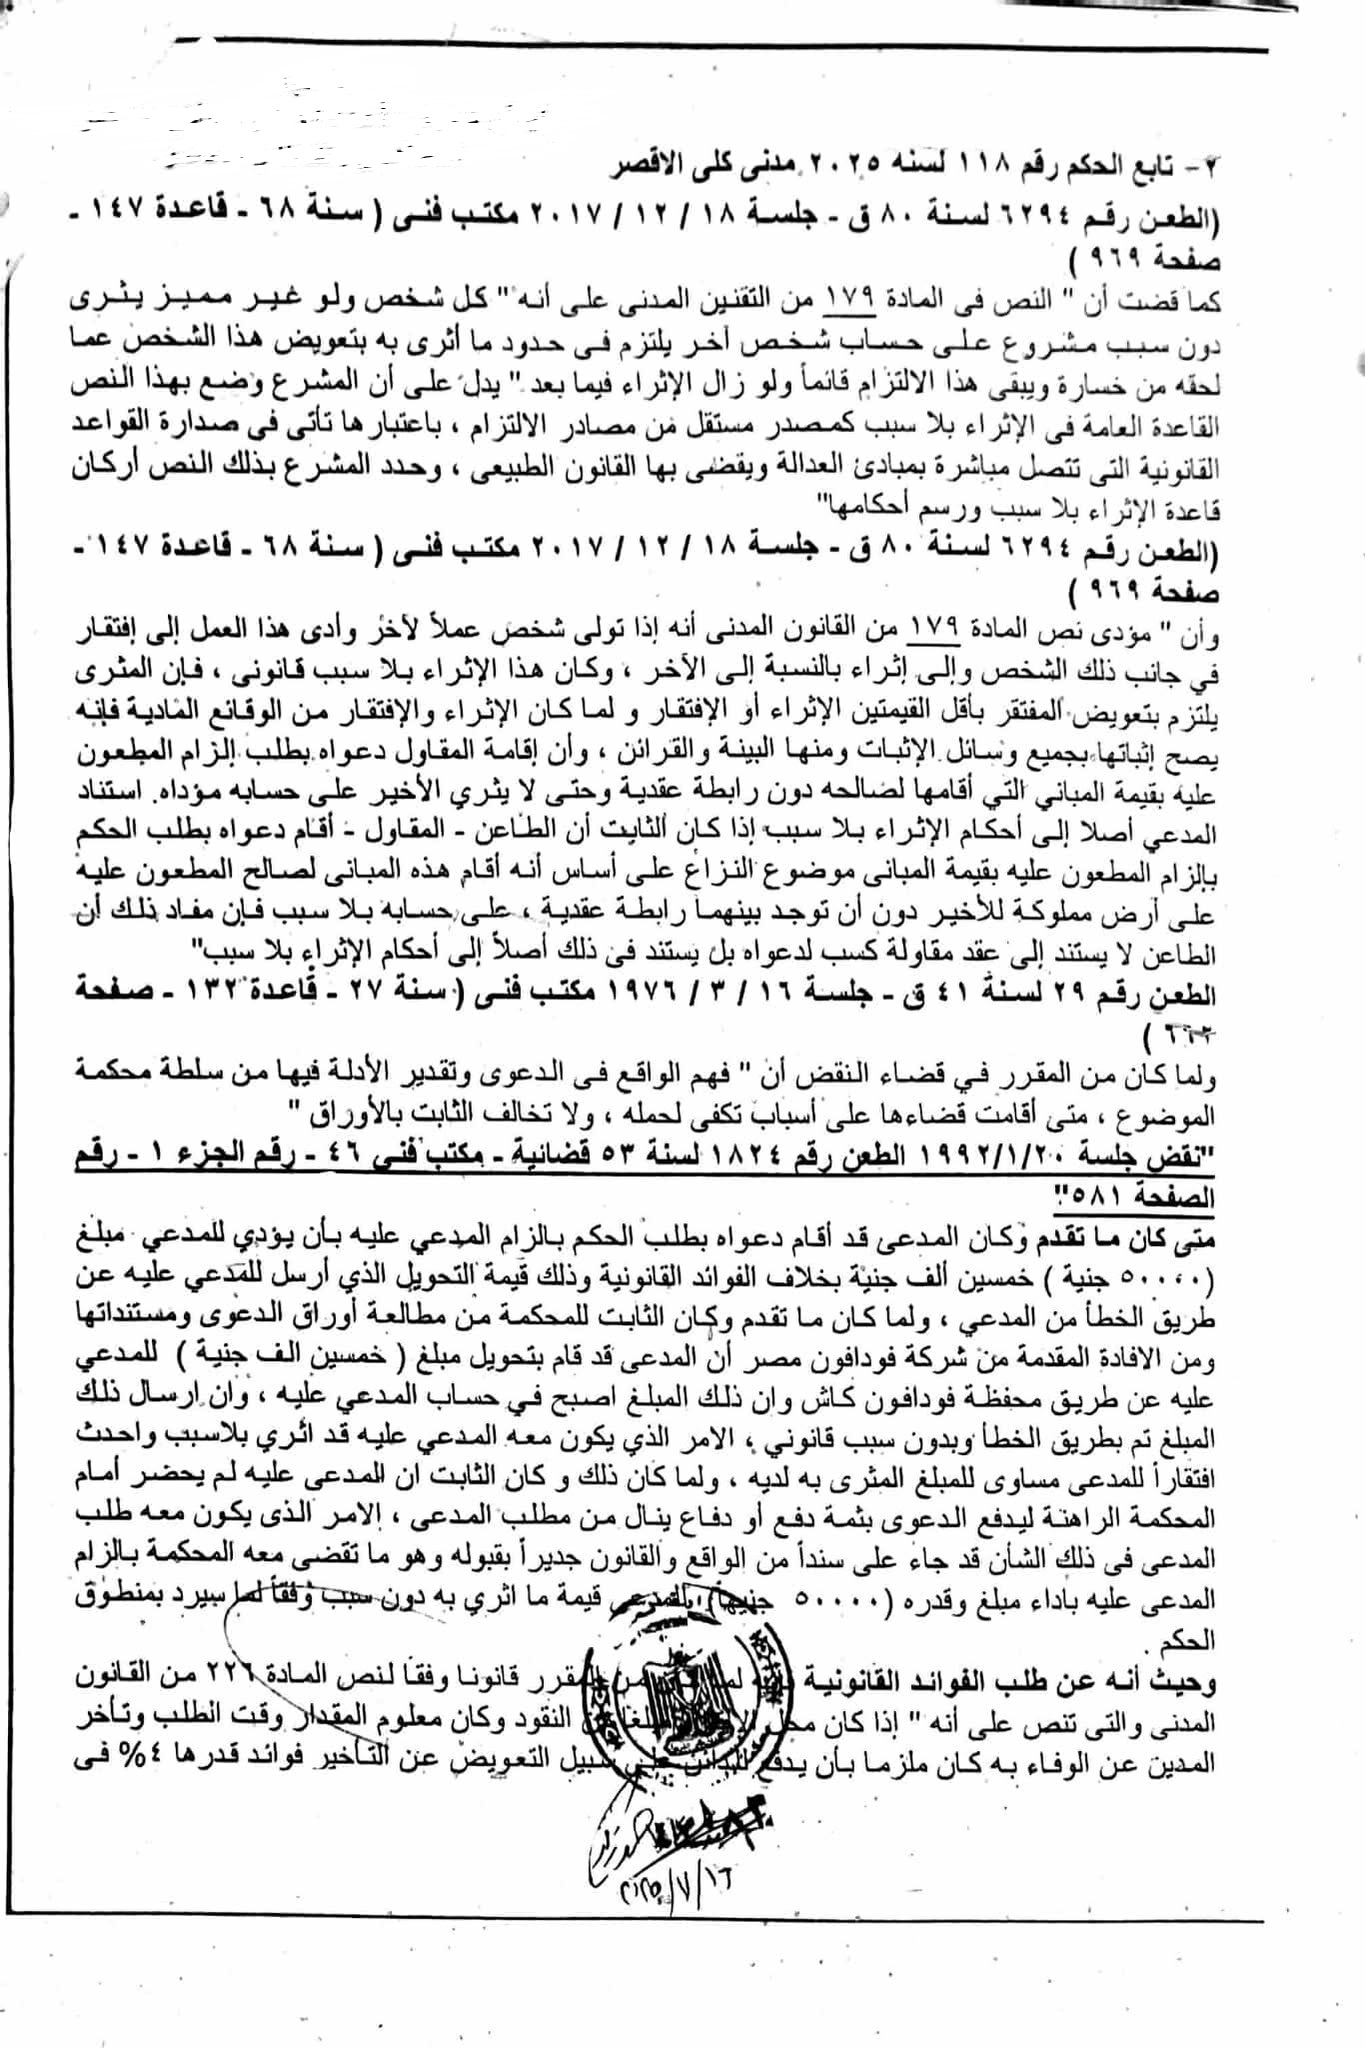 ٢- تابع الحكم رقم ١١٨ لسنه ٢٠٢٥ مدنى كلى الاقصر
(الطعن رقم ٦٢٩٤ لسنة ٨٠ ق - جلسة ١٨ / ١٢ / ٢٠١٧ مكتب فنى ( سنة ٦٨ - قاعدة ١٤٧ -
صفحة ٩٦٩ )
كما قضت أن " النص فى المادة ١٧٩ من التقنين المدنى على أنه " كل شخص ولو غير مميز يثرى
دون سبب مشروع على حساب شخص آخر يلتزم فى حدود ما أثرى به بتعويض هذا الشخص عما
لحقه من خسارة ويبقى هذا الالتزام قائماً ولو زال الإثراء فيما بعد " يدل على أن المشرع وضع بهذا النص
القاعدة العامة فى الإثراء بلا سبب كمصدر مستقل من مصادر الالتزام ، باعتبارها تأتى فى صدارة القواعد
القانونية التى تتصل مباشرة بمبادئ العدالة ويقضى بها القانون الطبيعى ، وحدد المشرع بذلك النص أركان
قاعدة الإثراء بلا سبب ورسم أحكامها"
(الطعن رقم ٦٢٩٤ لسنة ٨٠ ق - جلسة ١٨ / ١٢ / ٢٠١٧ مكتب فنى ( سنة ٦٨ - قاعدة ١٤٧ -
صفحة ٩٦٩ )
وأن " مؤدى نص المادة ١٧٩ من القانون المدنى أنه إذا تولى شخص عملاً لآخر وأدى هذا العمل إلى إفتقار
في جانب ذلك الشخص وإلى إثراء بالنسبة إلى الآخر ، وكان هذا الإثراء بلا سبب قانونى ، فإن المثرى
يلتزم بتعويض المفتقر بأقل القيمتين الإثراء أو الإفتقار و لما كان الإثراء والإفتقار من الوقائع المادية فإنه
يصح إثباتها بجميع وسائل الإثبات ومنها البينة والقرائن ، وأن إقامة المقاول دعواه بطلب إلزام المطعون
عليه بقيمة المباني التي أقامها لصالحه دون رابطة عقدية وحتى لا يثري الأخير على حسابه مؤداه. استناد
المدعي أصلا إلى أحكام الإثراء بلا سبب إذا كان الثابت أن الطاعن - المقاول - أقام دعواه بطلب الحكم
بإلزام المطعون عليه بقيمة المبانى موضوع النزاع على أساس أنه أقام هذه المبانى لصالح المطعون عليه
على أرض مملوكة للأخير دون أن توجد بينهما رابطة عقدية ، على حسابه بلا سبب فإن مفاد ذلك أن
الطاعن لا يستند إلى عقد مقاولة كسب لدعواه بل يستند فى ذلك أصلاً إلى أحكام الإثراء بلا سبب"
الطعن رقم ٢٩ لسنة ٤١ ق - جلسة ١٦ / ٣ / ١٩٧٦ مكتب فنى ( سنة ٢٧ - قاعدة ١٣٢ - صفحة
٦٦٢ )
ولما كان من المقرر في قضاء النقض أن " فهم الواقع فى الدعوى وتقدير الأدلة فيها من سلطة محكمة
الموضوع ، متى أقامت قضاءها على أسباب تكفى لحمله ، ولا تخالف الثابت بالأوراق "
"نقض جلسة ١٩٩٢/١/٢٠ الطعن رقم ١٨٢٤ لسنة ٥٣ قضائية - مكتب فنى ٤٦ - رقم الجزء ١ - رقم
الصفحة ٥٨١"
متى كان ما تقدم وكان المدعى قد أقام دعواه بطلب الحكم بالزام المدعي عليه بأن يؤدي للمدعي مبلغ
(٥٠،٠٠ جنية ) خمسين ألف جنية بخلاف الفوائد القانونية وذلك قيمة التحويل الذي أرسل للمدعي عليه عن
طريق الخطأ من المدعي ، ولما كان ما تقدم وكان الثابت للمحكمة من مطالعة أوراق الدعوى ومستنداتها
ومن الافادة المقدمة من شركة فودافون مصر أن المدعى قد قام بتحويل مبلغ ( خمسين الف جنية ) للمدعي
عليه عن طريق محفظة فودافون كاش وان ذلك المبلغ اصبح في حساب المدعي عليه ، وان ارسال ذلك
المبلغ تم بطريق الخطأ وبدون سبب قانوني ، الامر الذي يكون معه المدعي عليه قد اثري بلاسبب واحدث
افتقاراً للمدعى مساوى للمبلغ المثرى به لديه ، ولما كان ذلك و كان الثابت ان المدعى عليه لم يحضر أمام
المحكمة الراهنة ليدفع الدعوى بثمة دفع أو دفاع ينال من مطلب المدعى ، الامر الذى يكون معه طلب
المدعى فى ذلك الشأن قد جاء على سنداً من الواقع والقانون جديراً بقبوله وهو ما تقضى معه المحكمة بالزام
المدعى عليه باداء مبلغ وقدره (٥٠٠٠٠ جنيها) للمدعى قيمة ما اثري به دون سبب وفقاً لما سيرد بمنطوق
الحكم .
وحيث أنه عن طلب الفوائد القانونية لما كان من المقرر قانونا وفقا لنص المادة ٢٢٦ من القانون
المدنى والتى تنص على أنه " إذا كان محل من النقود وكان معلوم المقدار وقت الطلب وتأخر
المدين عن الوفاء به كان ملزما بأن يدفع للدائن على سبيل التعويض عن التأخير فوائد قدرها ٤% فى
٢٠٢٥/٧/١٦